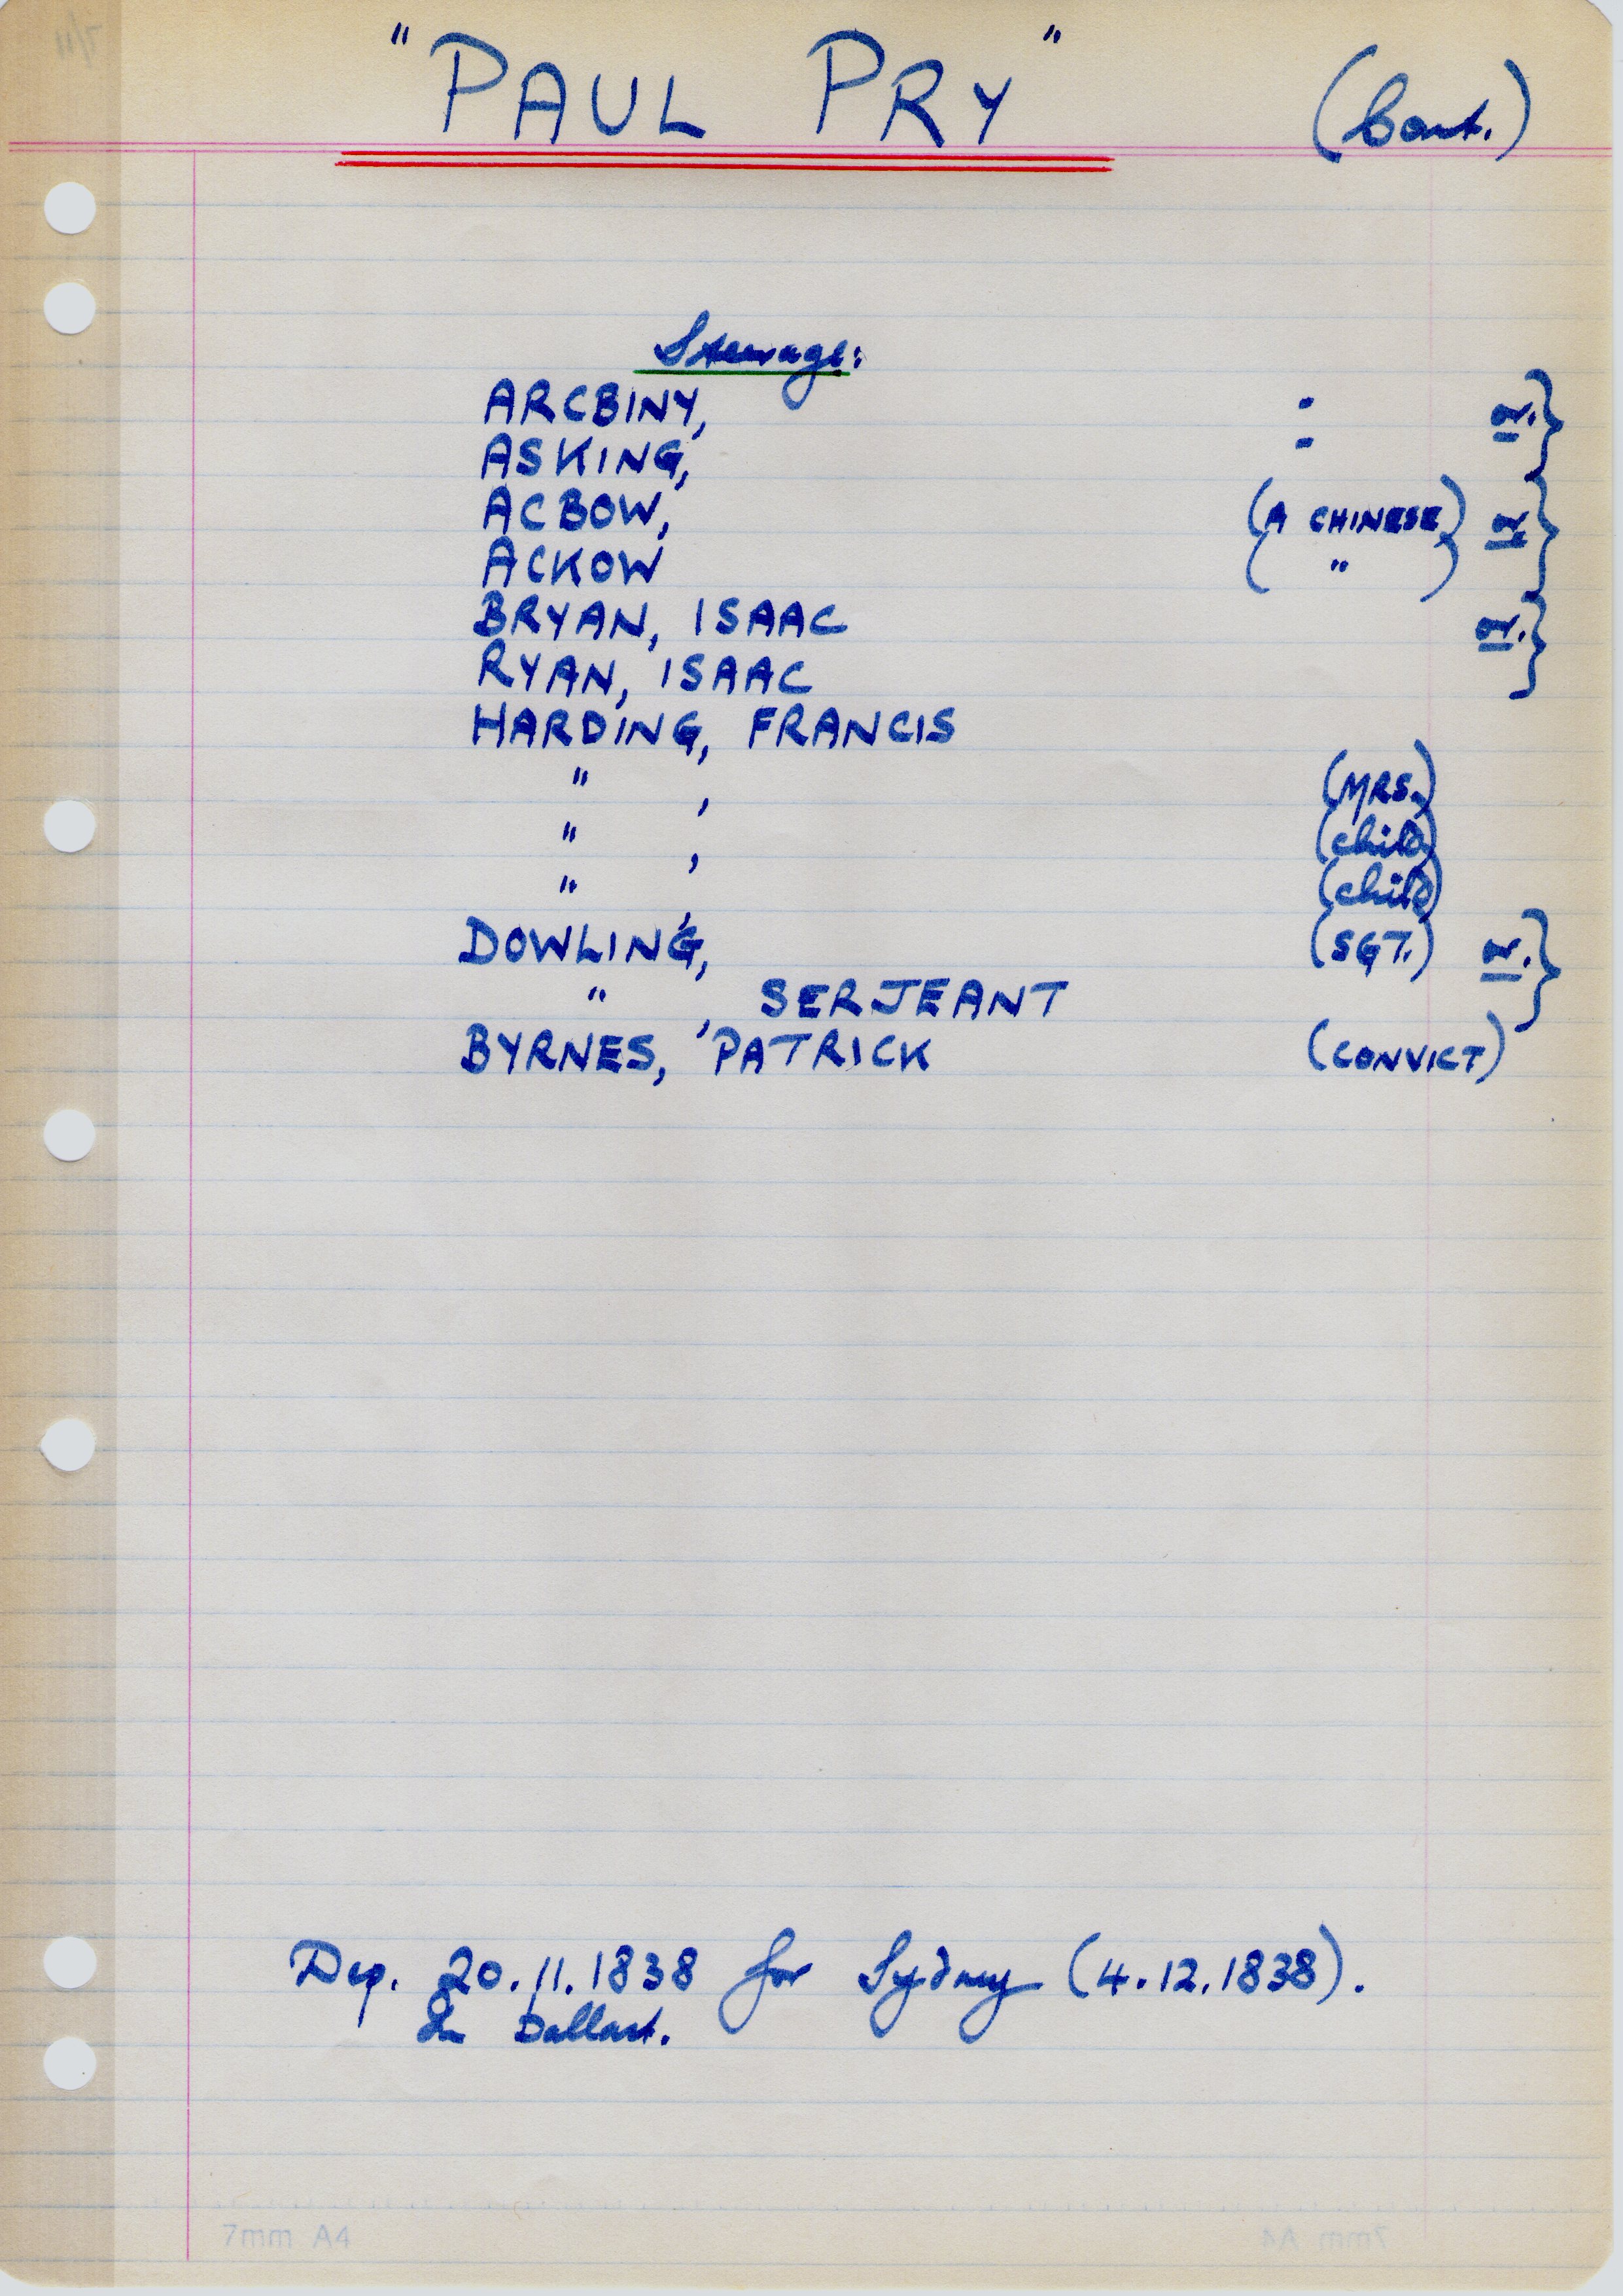 "PAUL PRY" (Cont.)
Steerage:
ARCBINY, - or. }
ASKING, -
ACBOW, (A CHINESE) or }
ACKOW ( " )
BRYAN, ISAAC or. }
RYAN, ISAAC
HARDING, FRANCIS
" , (MRS.)
" , (child)
" , (child)
DOWLING, (SGT.) or. }
" , SERJEANT
BYRNES, PATRICK (CONVICT)
Dep. 20.11.1838 for Sydney (4.12.1838).
In Ballast.
7mm A4